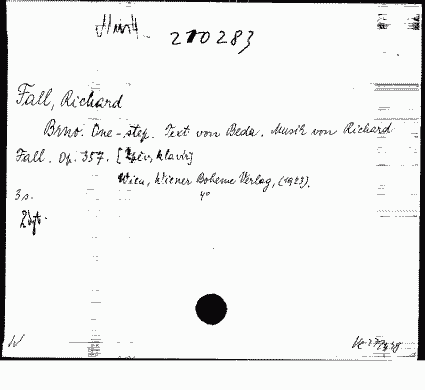 210283
Fall, Richard
Brno. One-step. Text von Beda. Musik von Richard
Fall. Op. 357. [Zpěv, klavír]
Wien, Wiener Boheme Verlag, (1923).
3 s. 4°